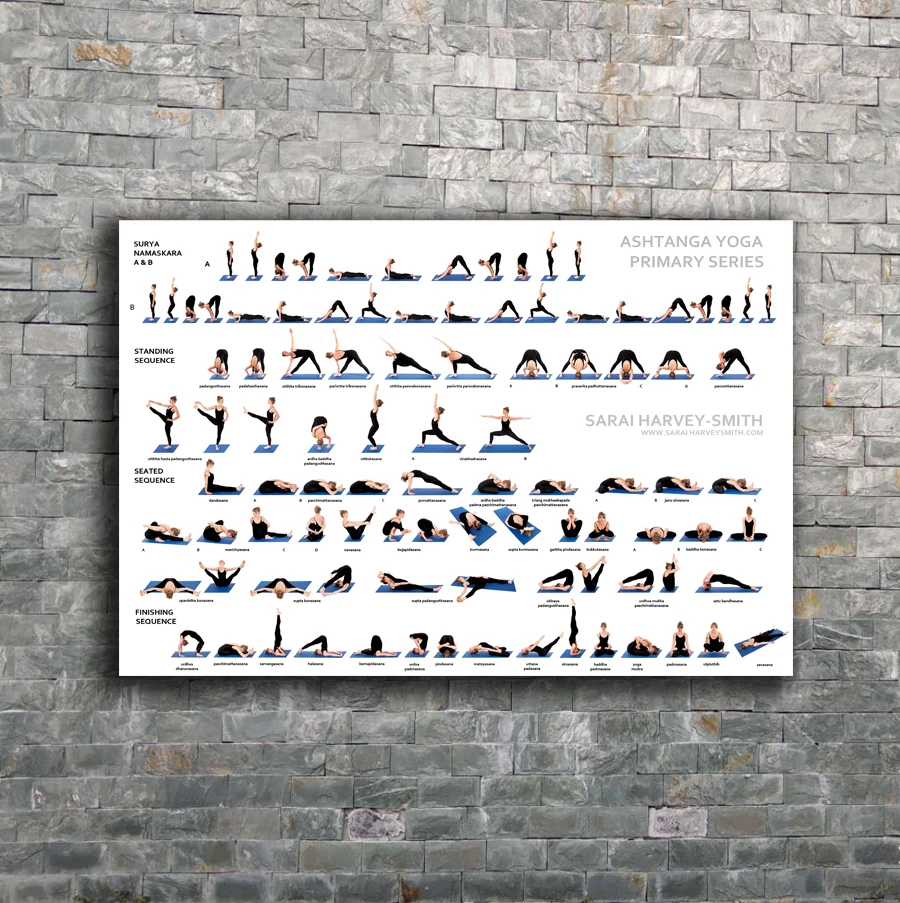 SURYA
NAMASKARA
A & B
A
ASHTANGA YOGA
PRIMARY SERIES
B
STANDING
SEQUENCE
padangusthasana padahasthasana utthita trikonasana parivrtta trikonasana utthita parsvakonasana parivrtta parsvakonasana A B prasarita padhottanasana C D parsvottanasana
SARAI HARVEY-SMITH
WWW.SARAIHARVEYSMITH.COM
utthita hasta padangusthasana ardha baddha padangusthasana utkatasana A virabhadrasana B
SEATED
SEQUENCE
dandasana A B paschimattanasana C purvattanasana ardha baddha padma paschimattanasana triang mukhaekapada paschimattanasana A B janu sirsasana C
A B marichyasana C D navasana bujapidasana kurmasana supta kurmasana garbha pindasana kukkutasana A B baddha konasana C
upavistha konasana supta konasana supta padangusthasana ubhaya padangusthasana urdhva mukha paschimattanasana setu bandhasana
FINISHING
SEQUENCE
urdhva dhanurasana paschimattanasana sarvangasana halasana karnapidasana urdva padmasana pindasana matsyasana uttana padasana sirsasana baddha padmasana yoga mudra padmasana utpluttidh savasana